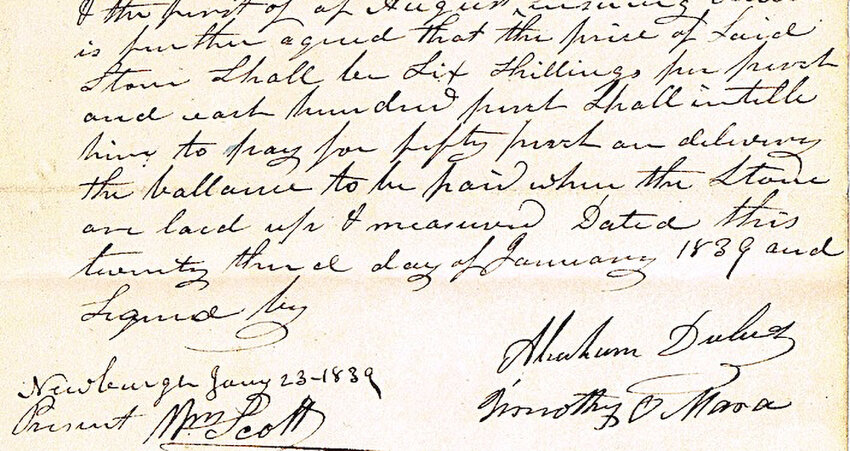 & the first of of August ensuing
is further agreed that the price of Said
Stone Shall be Six Shillings per perch
and each hundred perch Shall intitle
him to pay for fifty perch on delivery
the ballance to be paid when the Stone
are laid up & measured Dated this
twenty third day of January 1839 and
Signed by
Abraham
Newburgh Jany 23-1839
Timothy O Mara
Present Wm Scott